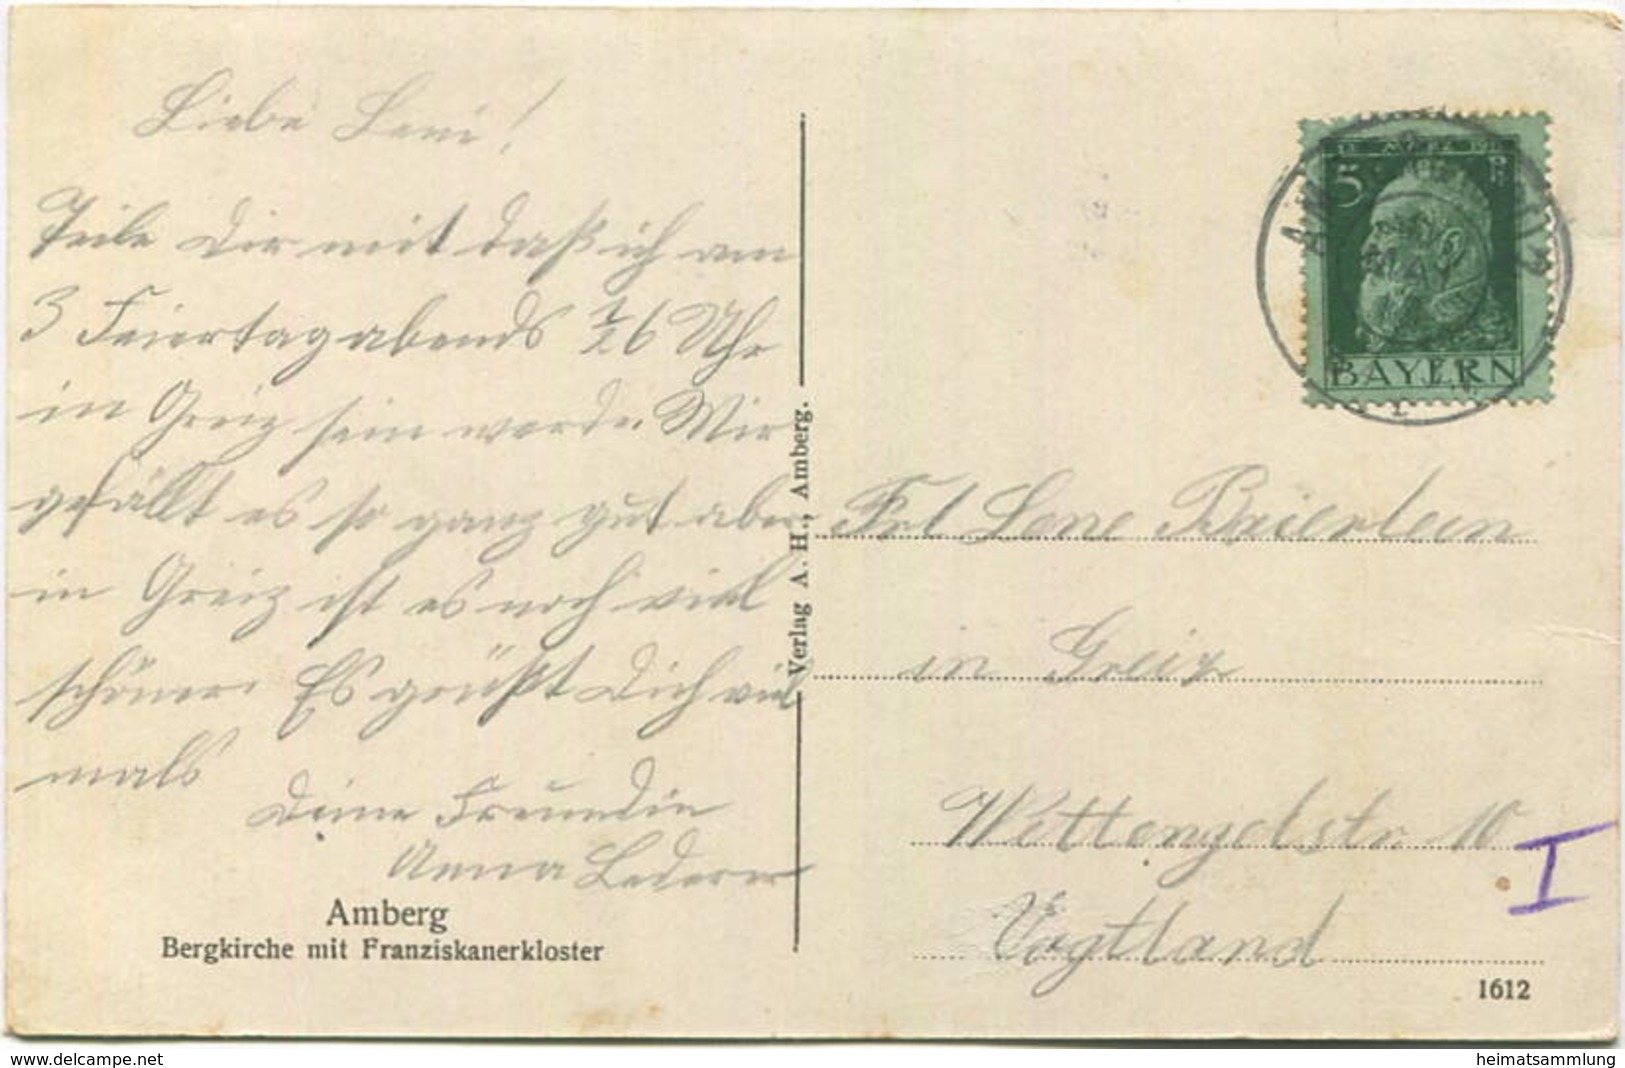 Liebe Leni!
Teile Dir mit daß ich am
3 Feiertag abends 1/26 Uhr
in Greiz sein werde. Mir
gefällt es so ganz gut aber
in Greiz ist es noch viel
schöner. Es grüßt Dich viel
mals
Deine Freundin
Anna Lederer
Amberg
Bergkirche mit Franziskanerkloster
Verlag A. H., Amberg.
5
BAYERN
Frl Lene Baierlein
in Greiz
Wettengelstr. 10
I
Vogtland
1612
www.delcampe.net
heimatsammlung